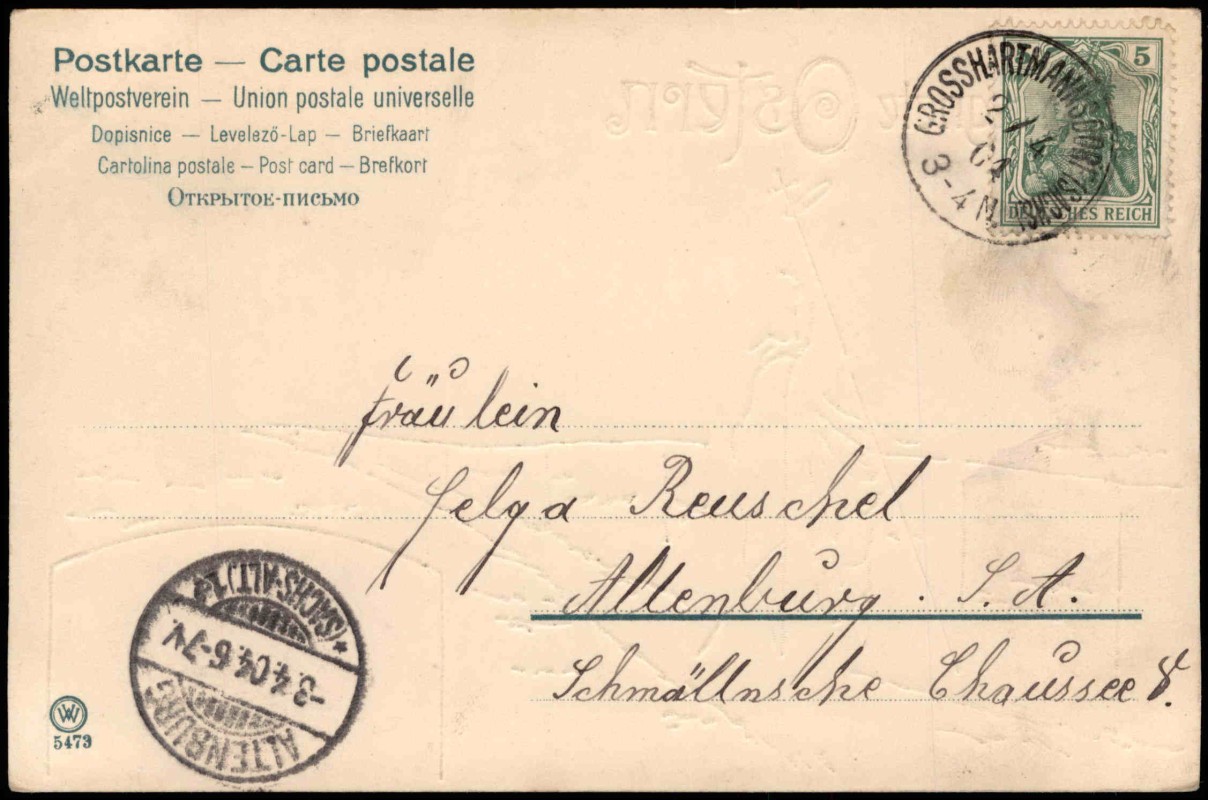 Postkarte — Carte postale
Weltpostverein — Union postale universelle
Dopisnice — Levelező-Lap — Briefkaart
Cartolina postale — Post card — Brefkort
Открытое-письмо
Ostern
GROSSHARTMANNSDORF (SACHSEN)
2 4
04
3-4 N.
5
DEUTSCHES REICH
Fräulein
Helga Reuschel
Altenburg. S. A.
Schmöllnsche Chaussee 8.
ALTENBURG
-3.4.04.6-7V.
(SACHS-ALT.) 1a
*
W
5473